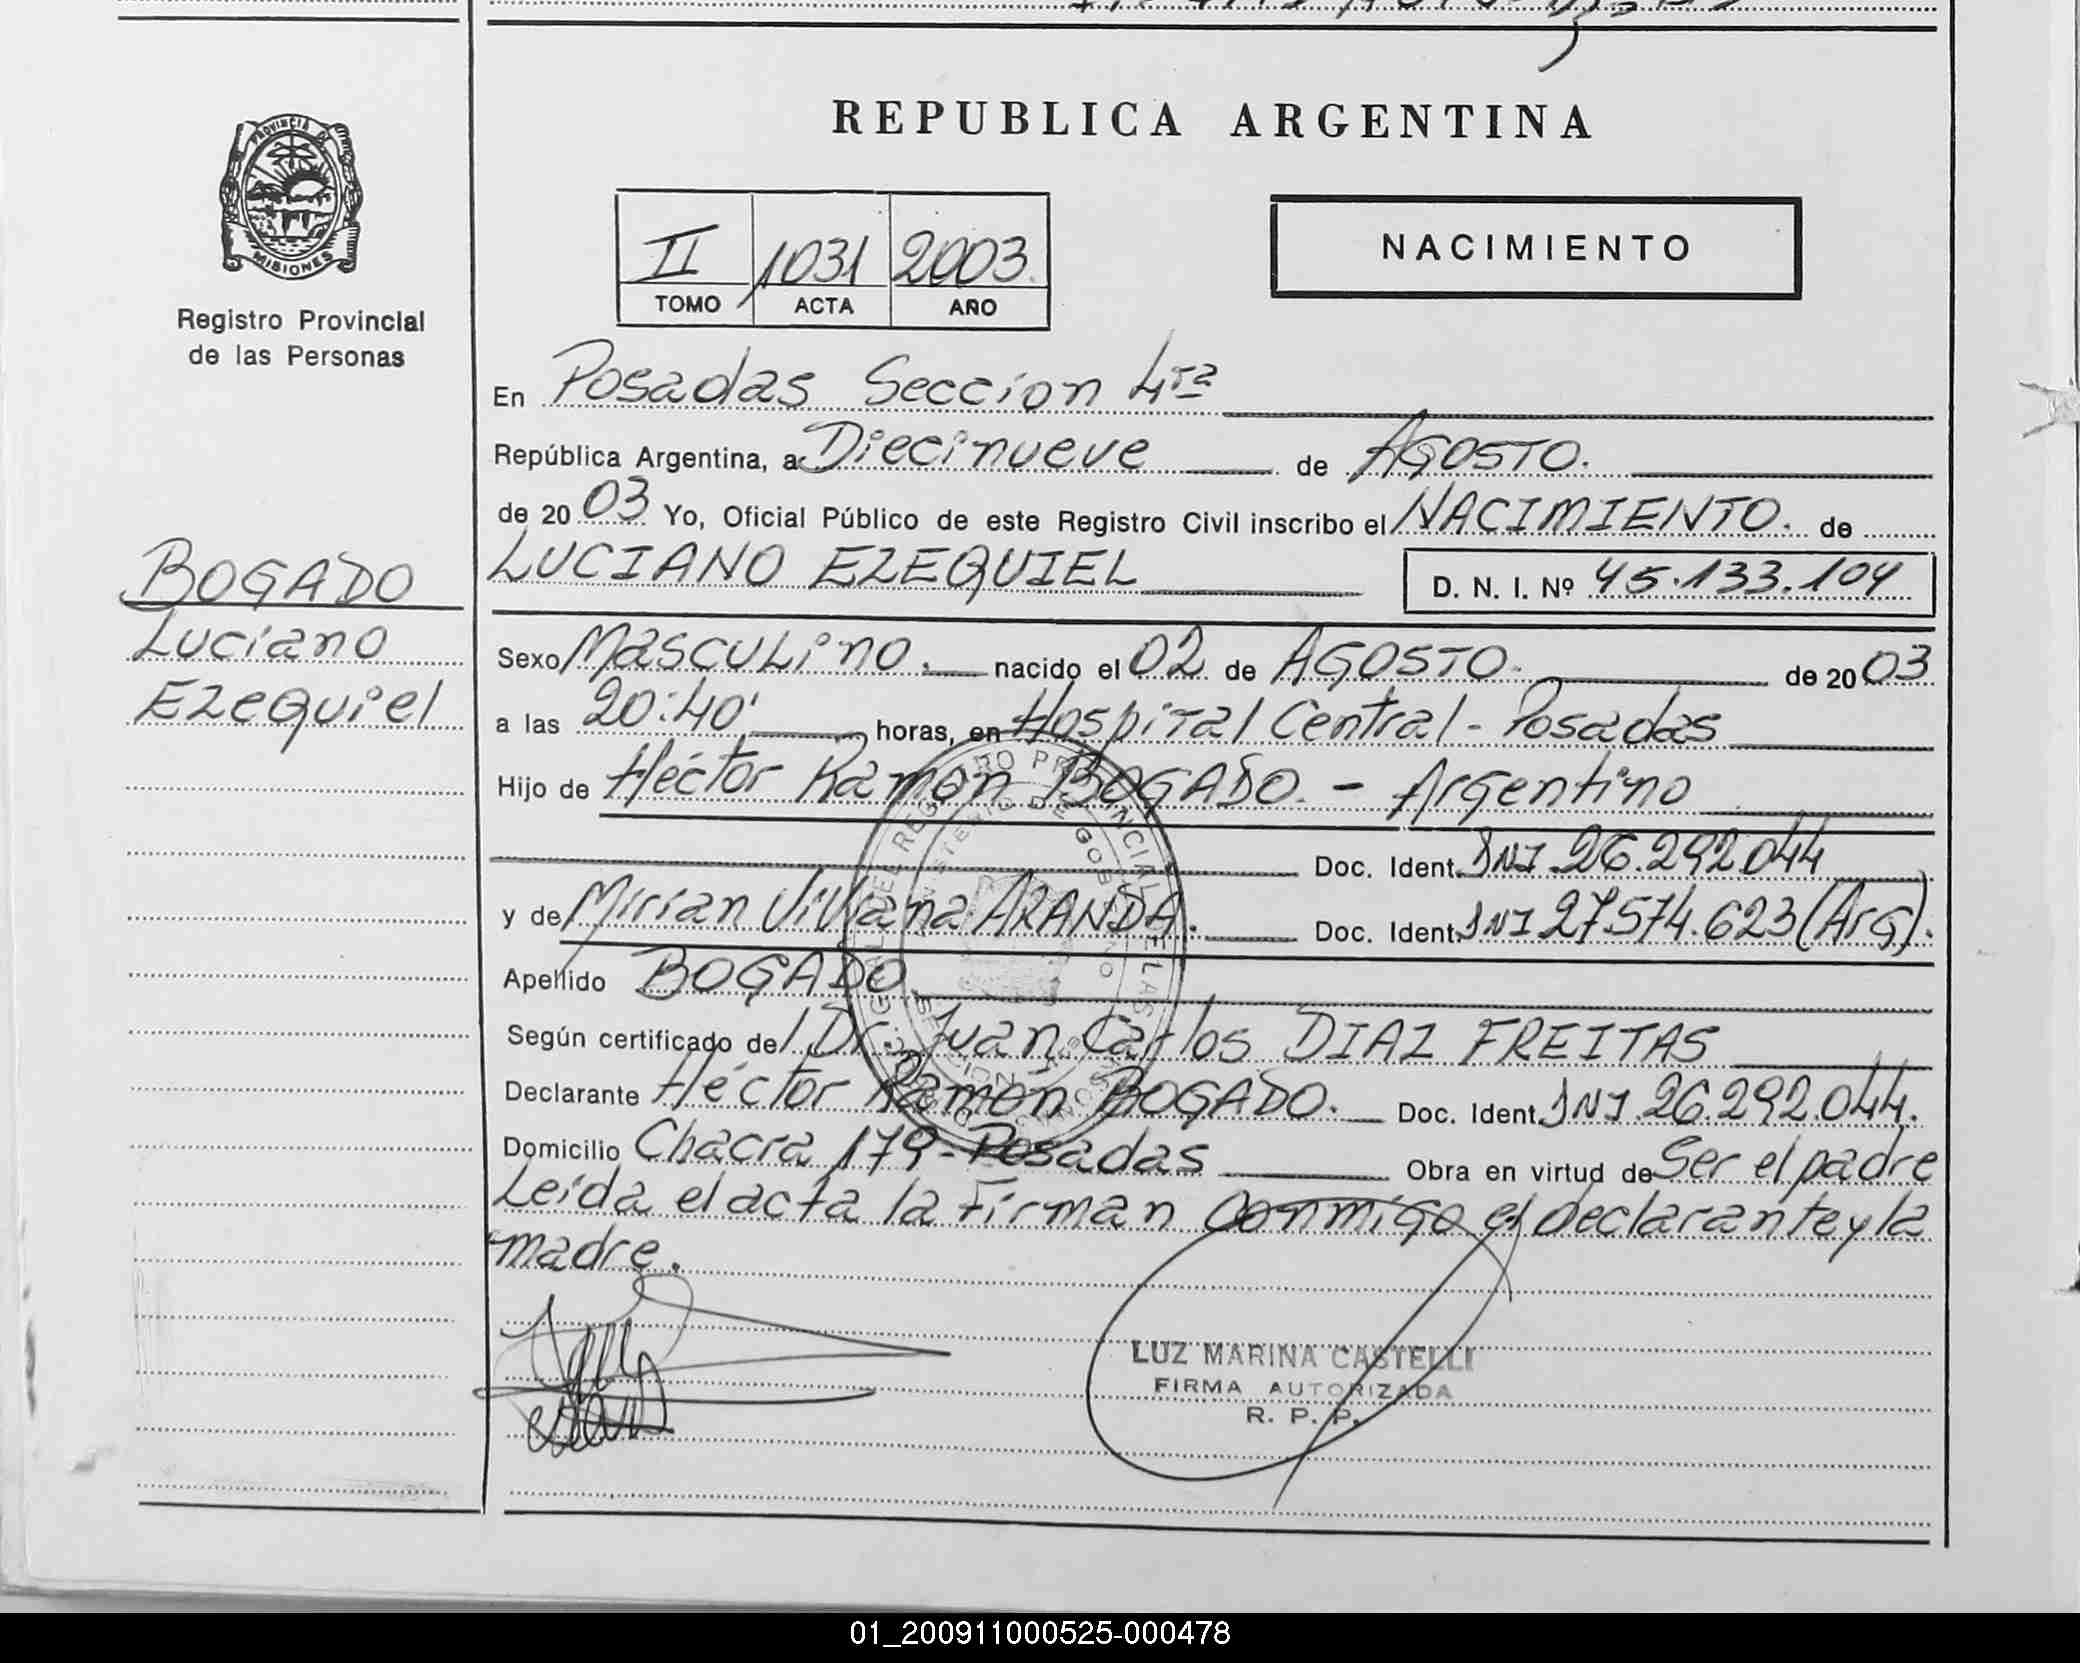 REPUBLICA ARGENTINA
PROVINCIA DE
MISIONES
Registro Provincial
de las Personas
II 1031 2003.
TOMO ACTA AÑO
NACIMIENTO
En Posadas Sección 4ta
República Argentina, a Diecinueve de AGOSTO.
de 2003 Yo, Oficial Público de este Registro Civil inscribo el NACIMIENTO. de
LUCIANO EZEQUIEL D. N. I. Nº 45.133.104
BOGADO
Luciano
Ezequiel
Sexo Masculino. nacido el 02 de AGOSTO. de 2003
a las 20:40' horas, en Hospital Central - Posadas
Hijo de Héctor Ramón BOGADO. - Argentino
Doc. Ident. DNI 26.292.044
y de Mirian Viviana ARANDA. Doc. Ident. DNI 27.574.623 (Arg).
Apellido BOGADO.
Según certificado del Dr. Juan Carlos DIAZ FREITAS
Declarante Héctor Ramón BOGADO. Doc. Ident. DNI 26.292.044.
Domicilio Chacra 179 - Posadas Obra en virtud de Ser el padre
Leída el acta la Firman Conmigo el declarante y la
madre.
LUZ MARINA CASTELLI
FIRMA AUTORIZADA
R. P. P.
01_200911000525-000478